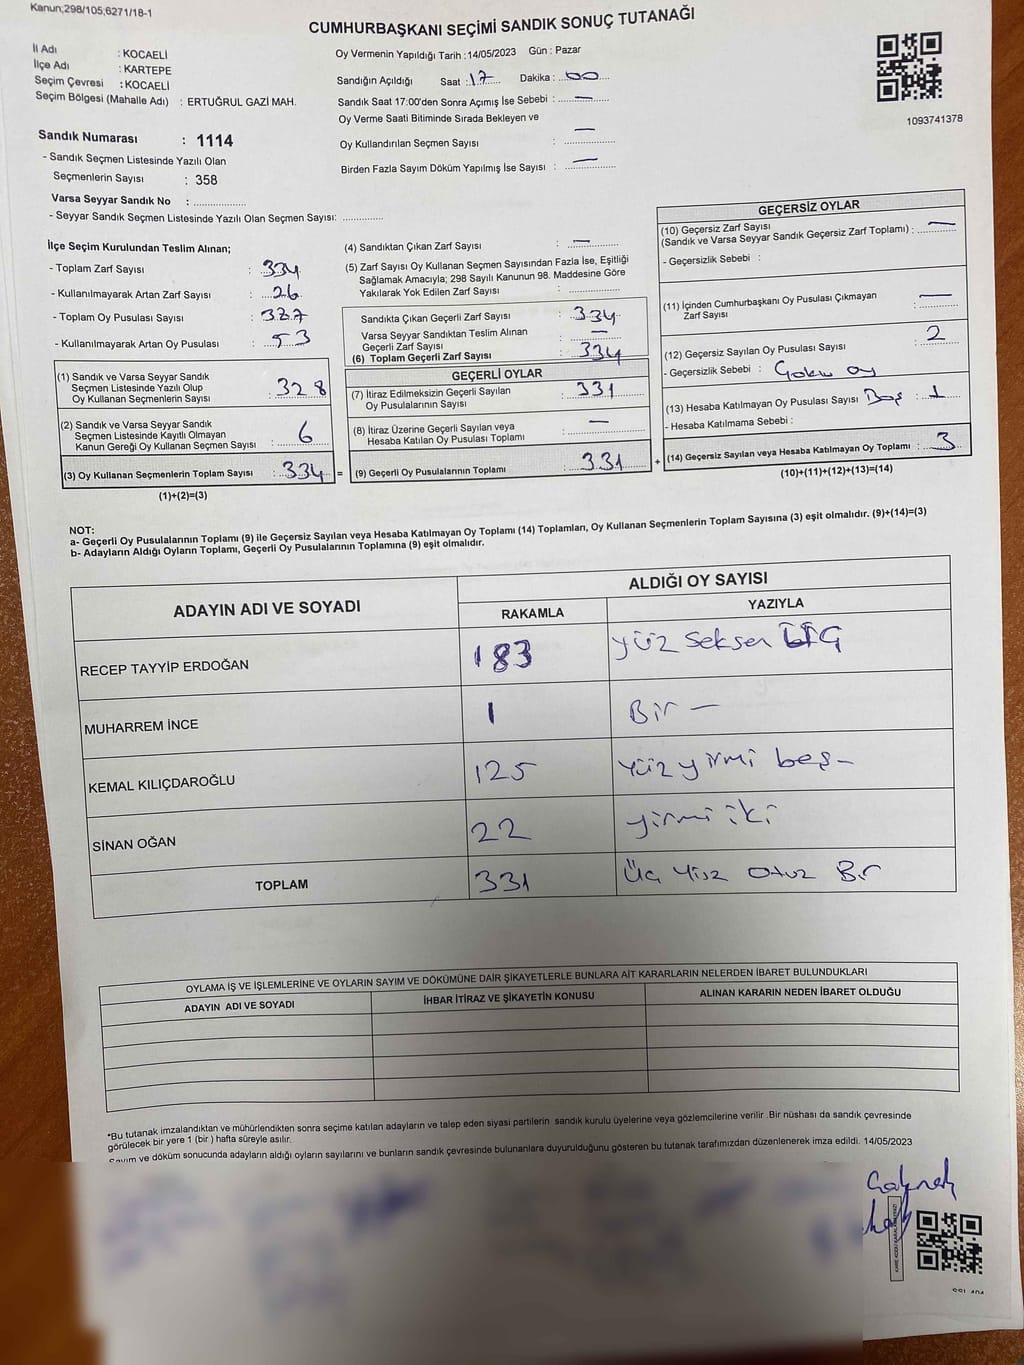 Kanun;298/105;6271/18-1
CUMHURBAŞKANI SEÇİMİ SANDIK SONUÇ TUTANAĞI
İl Adı : KOCAELİ
İlçe Adı : KARTEPE
Seçim Çevresi : KOCAELİ
Seçim Bölgesi (Mahalle Adı) : ERTUĞRUL GAZİ MAH.
Sandık Numarası : 1114
- Sandık Seçmen Listesinde Yazılı Olan
Seçmenlerin Sayısı : 358
Varsa Seyyar Sandık No : ..................
- Seyyar Sandık Seçmen Listesinde Yazılı Olan Seçmen Sayısı: ..............
Oy Vermenin Yapıldığı Tarih : 14/05/2023 Gün : Pazar
Sandığın Açıldığı Saat : 17 Dakika : 00
Sandık Saat 17:00'den Sonra Açımış İse Sebebi : —
Oy Verme Saati Bitiminde Sırada Bekleyen ve
Oy Kullandırılan Seçmen Sayısı : —
Birden Fazla Sayım Döküm Yapılmış İse Sayısı : —
1093741378
İlçe Seçim Kurulundan Teslim Alınan;
- Toplam Zarf Sayısı : 334
- Kullanılmayarak Artan Zarf Sayısı : 26
- Toplam Oy Pusulası Sayısı : 387
- Kullanılmayarak Artan Oy Pusulası : 53
(1) Sandık ve Varsa Seyyar Sandık
Seçmen Listesinde Yazılı Olup
Oy Kullanan Seçmenlerin Sayısı : 328
(2) Sandık ve Varsa Seyyar Sandık
Seçmen Listesinde Kayıtlı Olmayan
Kanun Gereği Oy Kullanan Seçmen Sayısı : 6
(3) Oy Kullanan Seçmenlerin Toplam Sayısı : 334 =
(1)+(2)=(3)
(4) Sandıktan Çıkan Zarf Sayısı : —
(5) Zarf Sayısı Oy Kullanan Seçmen Sayısından Fazla İse, Eşitliği
Sağlamak Amacıyla; 298 Sayılı Kanunun 98. Maddesine Göre
Yakılarak Yok Edilen Zarf Sayısı : ..............
Sandıkta Çıkan Geçerli Zarf Sayısı : 334
Varsa Seyyar Sandıktan Teslim Alınan
Geçerli Zarf Sayısı : —
(6) Toplam Geçerli Zarf Sayısı : 334
GEÇERLİ OYLAR
(7) İtiraz Edilmeksizin Geçerli Sayılan
Oy Pusulalarının Sayısı : 331
(8) İtiraz Üzerine Geçerli Sayılan veya
Hesaba Katılan Oy Pusulası Toplamı : —
(9) Geçerli Oy Pusulalarının Toplamı : 331 +
GEÇERSİZ OYLAR
(10) Geçersiz Zarf Sayısı
(Sandık ve Varsa Seyyar Sandık Geçersiz Zarf Toplamı) : —
- Geçersizlik Sebebi :
(11) İçinden Cumhurbaşkanı Oy Pusulası Çıkmayan
Zarf Sayısı : —
(12) Geçersiz Sayılan Oy Pusulası Sayısı : 2
- Geçersizlik Sebebi : oy
(13) Hesaba Katılmayan Oy Pusulası Sayısı Boş : 1
- Hesaba Katılmama Sebebi :
(14) Geçersiz Sayılan veya Hesaba Katılmayan Oy Toplamı : 3
(10)+(11)+(12)+(13)=(14)
NOT:
a- Geçerli Oy Pusulasının Toplamı (9) ile Geçersiz Sayılan veya Hesaba Katılmayan Oy Toplamı (14) Toplamları, Oy Kullanan Seçmenlerin Toplam Sayısına (3) eşit olmalıdır. (9)+(14)=(3)
b- Adayların Aldığı Oyların Toplamı, Geçerli Oy Pusulalarının Toplamına (9) eşit olmalıdır.
ADAYIN ADI VE SOYADI ALDIĞI OY SAYISI
RAKAMLA YAZIYLA
RECEP TAYYİP ERDOĞAN 183 Yüz Seksen ÜÇ
MUHARREM İNCE 1 Bir —
KEMAL KILIÇDAROĞLU 125 Yüz yirmi beş —
SİNAN OĞAN 22 yirmi iki
TOPLAM 331 Üç Yüz Otuz Bir
OYLAMA İŞ VE İŞLEMLERİNE VE OYLARIN SAYIM VE DÖKÜMÜNE DAİR ŞİKAYETLERLE BUNLARA AİT KARARLARIN NELERDEN İBARET BULUNDUKLARI
ADAYIN ADI VE SOYADI İHBAR İTİRAZ VE ŞİKAYETİN KONUSU ALINAN KARARIN NEDEN İBARET OLDUĞU
*Bu tutanak imzalandıktan ve mühürlendikten sonra seçime katılan adayların ve talep eden siyasi partilerin sandık kurulu üyelerine veya gözlemcilerine verilir .Bir nüshası da sandık çevresinde
görülecek bir yere 1 (bir ) hafta süreyle asılır.
Sayım ve döküm sonucunda adayların aldığı oyların sayılarını ve bunların sandık çevresinde bulunanlara duyurulduğunu gösteren bu tutanak tarafımızdan düzenlenerek imza edildi. 14/05/2023